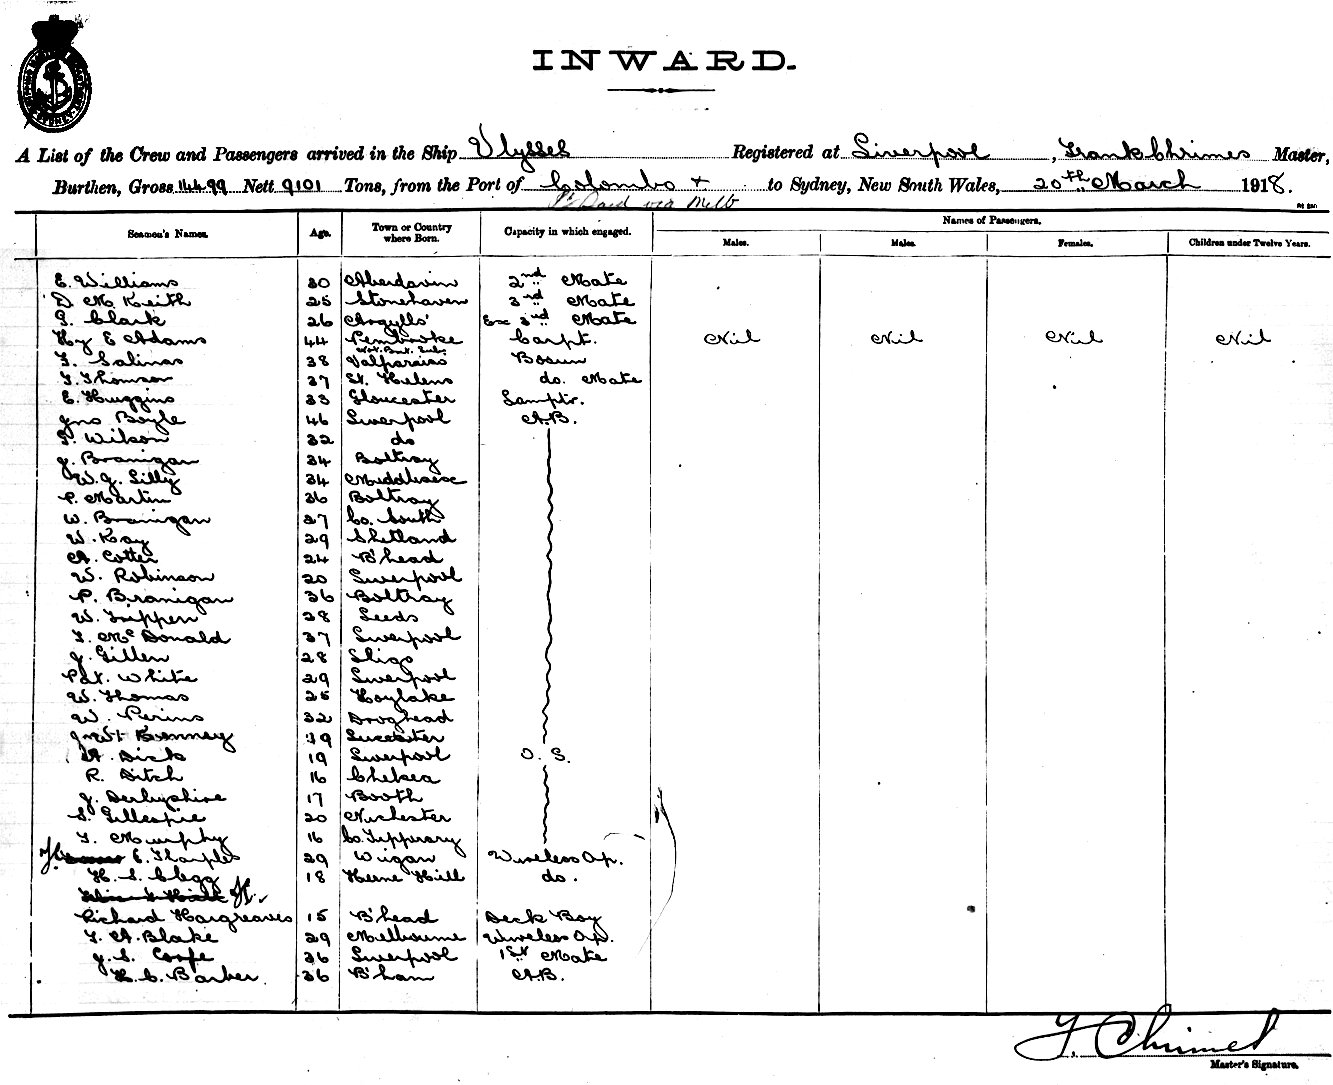 INWARD.
A List of the Crew and Passengers arrived in the Ship Ulysses Registered at Liverpool, Frank Chrimes Master,
Burthen, Gross 14499 Nett 9101 Tons, from the Port of Colombo + to Sydney, New South Wales, 20th March 1918.
Pt Said via Melb
Seamen's Names. Age. Town or Country where Born. Capacity in which engaged. Names of Passengers.
Males. Males. Females. Children under Twelve Years.
E. Williams 30 Aberdavin 2nd Mate
D. M. Keith 25 Stonehaven 3rd Mate
G. Clark 26 Argylls' Ex 3rd Mate
Hy E Adams 44 Pembroke Carpt. Nil Nil Nil Nil
F. Salinas 38 Valparaiso Bosun
T. Thomson 37 St. Helens do. Mate
E. Huggins 33 Gloucester Lamptr.
Jno Boyle 46 Liverpool A.B.
P. Wilson 32 do
J. Branigan 34 Boltray
W. J. Lilly 34 Middlesex
P. Martin 36 Boltray
W. Branigan 27 Co. Louth
W. Kay 29 Shetland
A. Cotter 24 B'head
W. Robinson 20 Liverpool
P. Branigan 36 Boltray
W. Tipper 28 Leeds
T. McDonald 37 Liverpool
J. Gillen 28 Sligo
Pat. White 29 Liverpool
W. Thomas 25 Hoylake
W. Perins 32 Droghead
Jno Wt Kenney 39 Leicester
A. Dick 19 Liverpool O. S.
R. Ditch 16 Chelsea
J. Derbyshire 17 Booth
S. Gillespie 20 Nichester
T. Murphy 16 Co. Tipperary
E. Tharples 29 Wigan Wireless Op.
H. S. Clegg 18 Herne Hill do.
Richard Hargreaves 15 B'head Deck Boy
F. A. Blake 29 Melbourne Wireless Op.
J. S. Corfe 36 Liverpool 1st Mate
H. C. Barber 36 B'ham A.B.
F. Chrimes
Master's Signature.